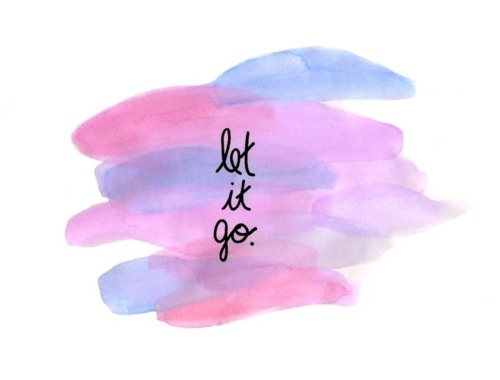 let
it
go.